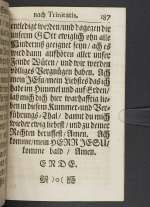 nach Trinitatis. 187
entlediget werden/und dagegen dir
unserm GOtt ewiglich ohn alle
Hindernis geeignet seyn/ ach es
wird dann aufhören aller unser
Feinde Wüten/ und wir werden
völliges Vergnügen haben. Ach
mein JEsu/mein Liebstes das ich
habe im Himmel und auf Erden/
laß mich doch hie warhafftig lie-
ben in diesem Kummer-und Ver-
führungs-Thal/ damit du mich
wieder ewig liebest/ und zu deiner
Rechten beruffest/Amen. Ach
komme/mein HERR JESU/
komme bald / Amen.
ENDE.